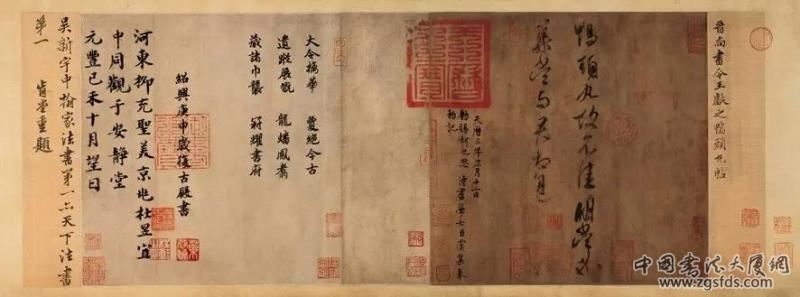 晉尚書令王獻之鴨頭丸帖
鴨頭丸故不佳明當必
集當與君相見
天曆之寶
天曆三年正月十二日
勑賜柯九思侍書學士臣虞集奉
勑記
大令摛華 夐絕今古
遺蹤展翫 龍蟠鳳翥
藏諸巾襲 冠耀書府
紹興庚申歲復古殿書
河東柳充聖美京兆杜昱宜
中同觀于安靜堂
元豐己未十月望日
吳新宇中翰家法書第一亦天下法書
第一 肯堂重題
中国书法大厦网
www.zgsfds.com